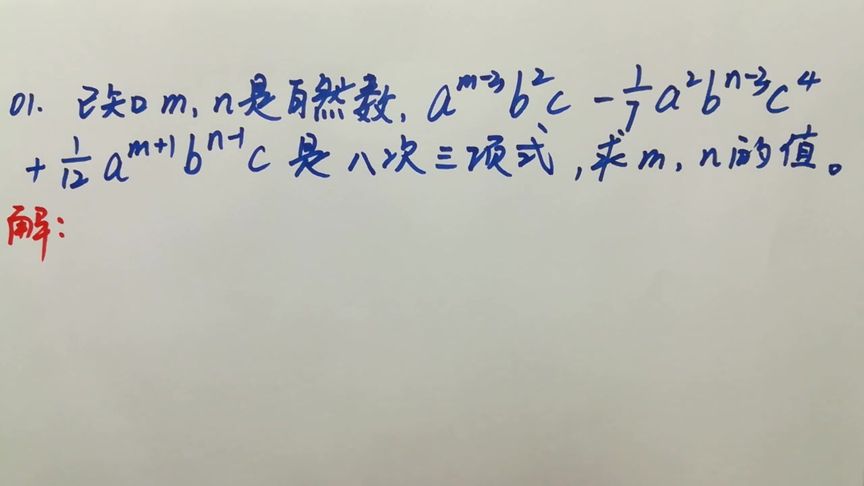 01. 已知 m, n是自然数, a^{m-3}b^2c - \frac{1}{7}a^2b^{n-3}c^4
+ \frac{1}{12}a^{m+1}b^{n-1}c 是八次三项式,求m, n的值。
解: